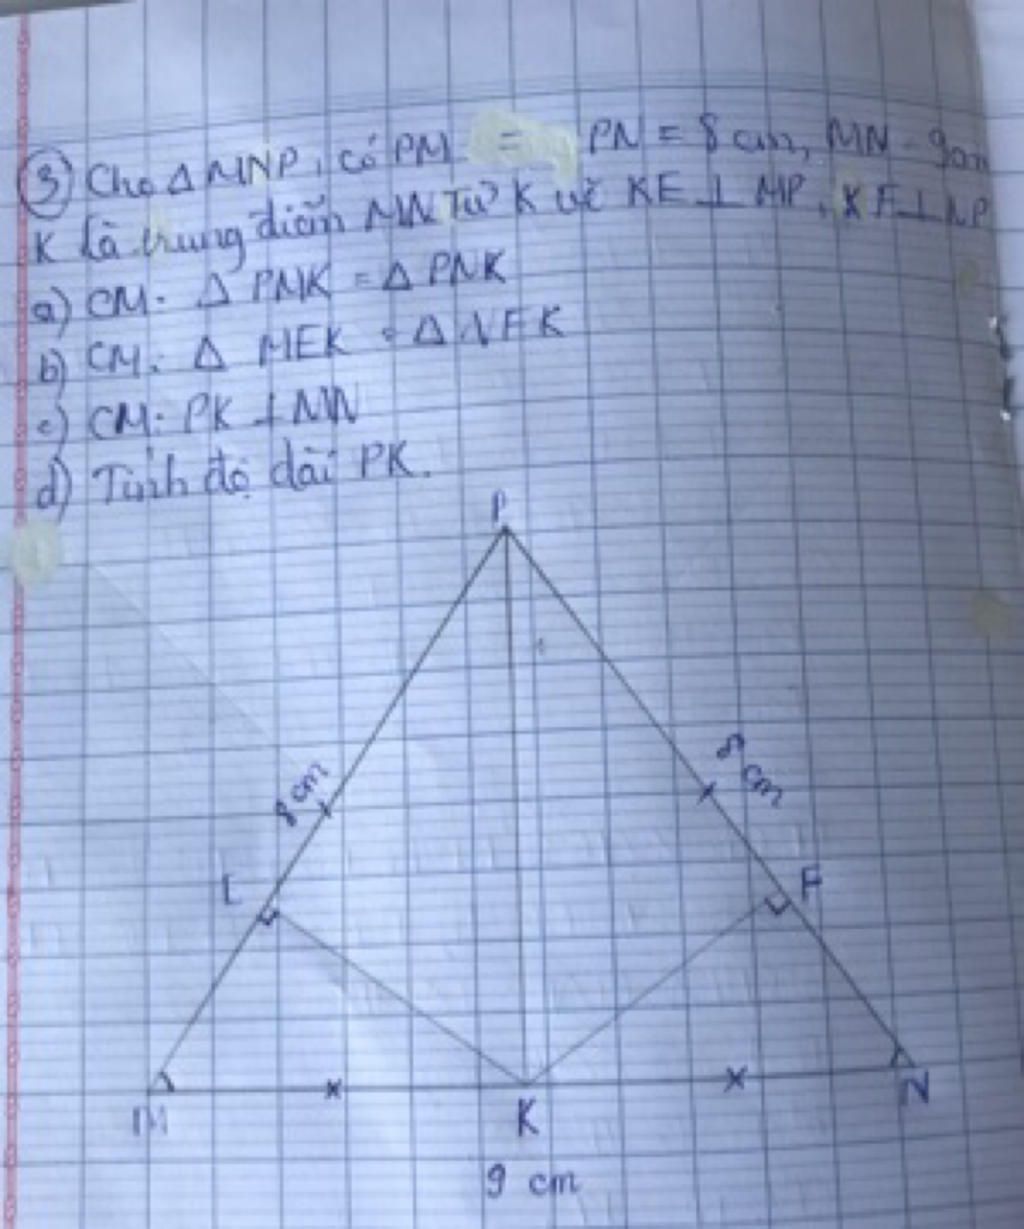 ③ Cho Δ MNP, có PM = PN = 8 cm, MN = 9cm
K là trung điểm MN Từ K vẽ KE ⊥ MP, KF ⊥ NP
a) CM: Δ PMK = Δ PNK
b) CM: Δ MEK = Δ NFK
c) CM: PK ⊥ MN
d) Tính độ dài PK.
P
8 cm
8 cm
E
F
M
K
N
9 cm